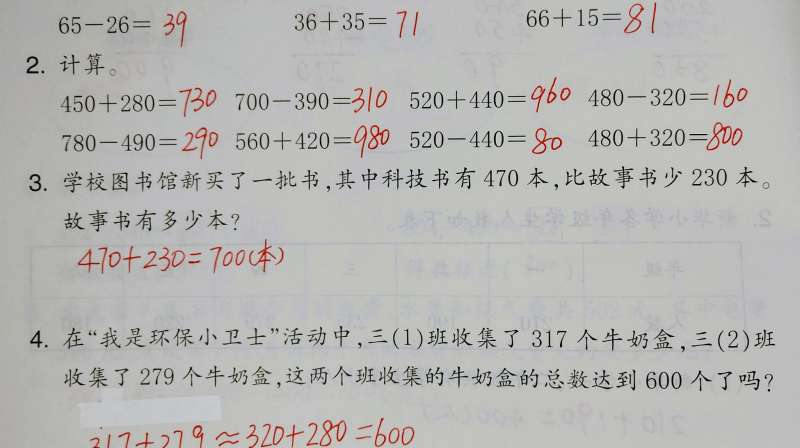 65－26＝39 36＋35＝71 66＋15＝81
2. 计算。
450＋280＝730 700－390＝310 520＋440＝960 480－320＝160
780－490＝290 560＋420＝980 520－440＝80 480＋320＝800
3. 学校图书馆新买了一批书，其中科技书有 470 本，比故事书少 230 本。
故事书有多少本？
470+230=700(本)
4. 在“我是环保小卫士”活动中，三(1)班收集了 317 个牛奶盒，三(2)班
收集了 279 个牛奶盒，这两个班收集的牛奶盒的总数达到 600 个了吗？
317+279≈320+280=600